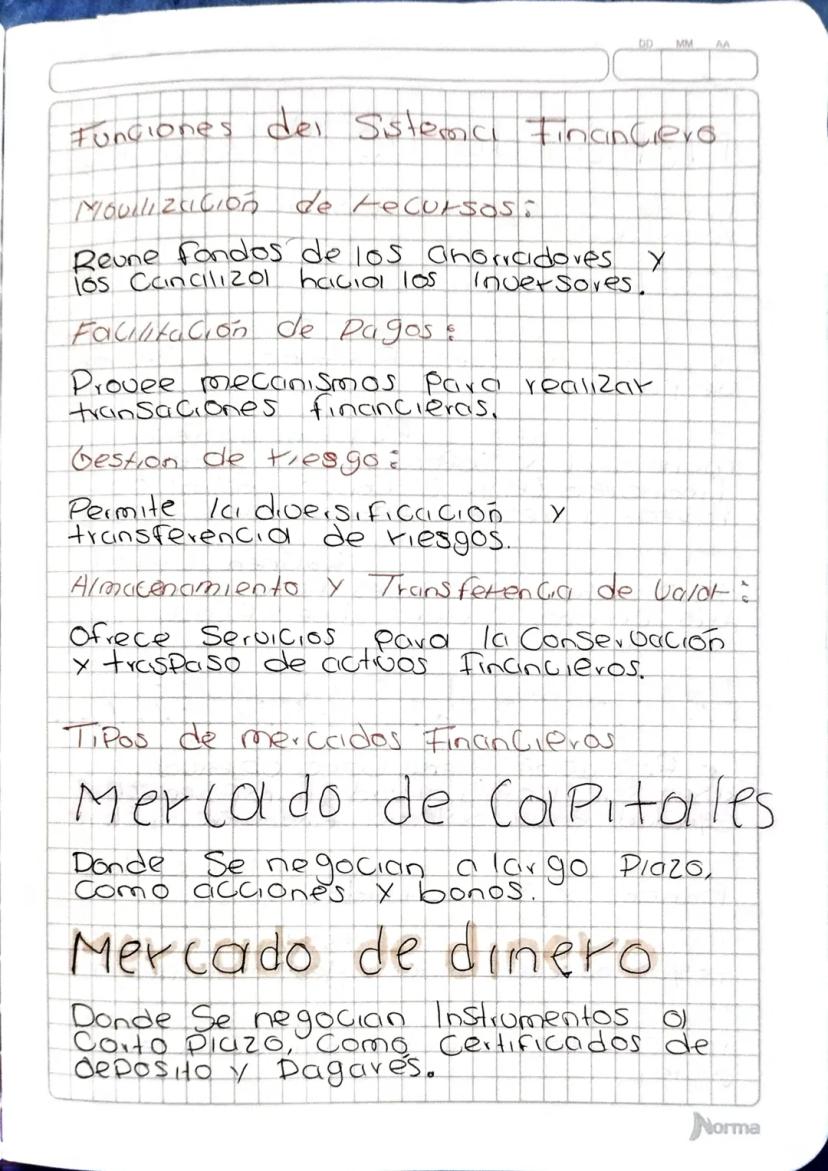 DD MM AA
Funciones del Sistema Financiero
Movilización de recursos:
Reune fondos de los ahorradores y
los canaliza hacia los inversores.
Facilitación de Pagos:
Provee mecanismos para realizar
transaciones financieras.
Gestion de riesgo:
Permite la diversificación y
transferencia de riesgos.
Almacenamiento y Transferencia de Valor:
Ofrece Servicios para la Conservación
y traspaso de activos financieros.
Tipos de mercados Financieros
Mercado de Capitales
Donde Se negocian a largo Plazo,
como acciones y bonos.
Mercado de dinero
Donde Se negocian Instrumentos a
Corto Plazo, como certificados de
deposito y Pagarés.
Norma